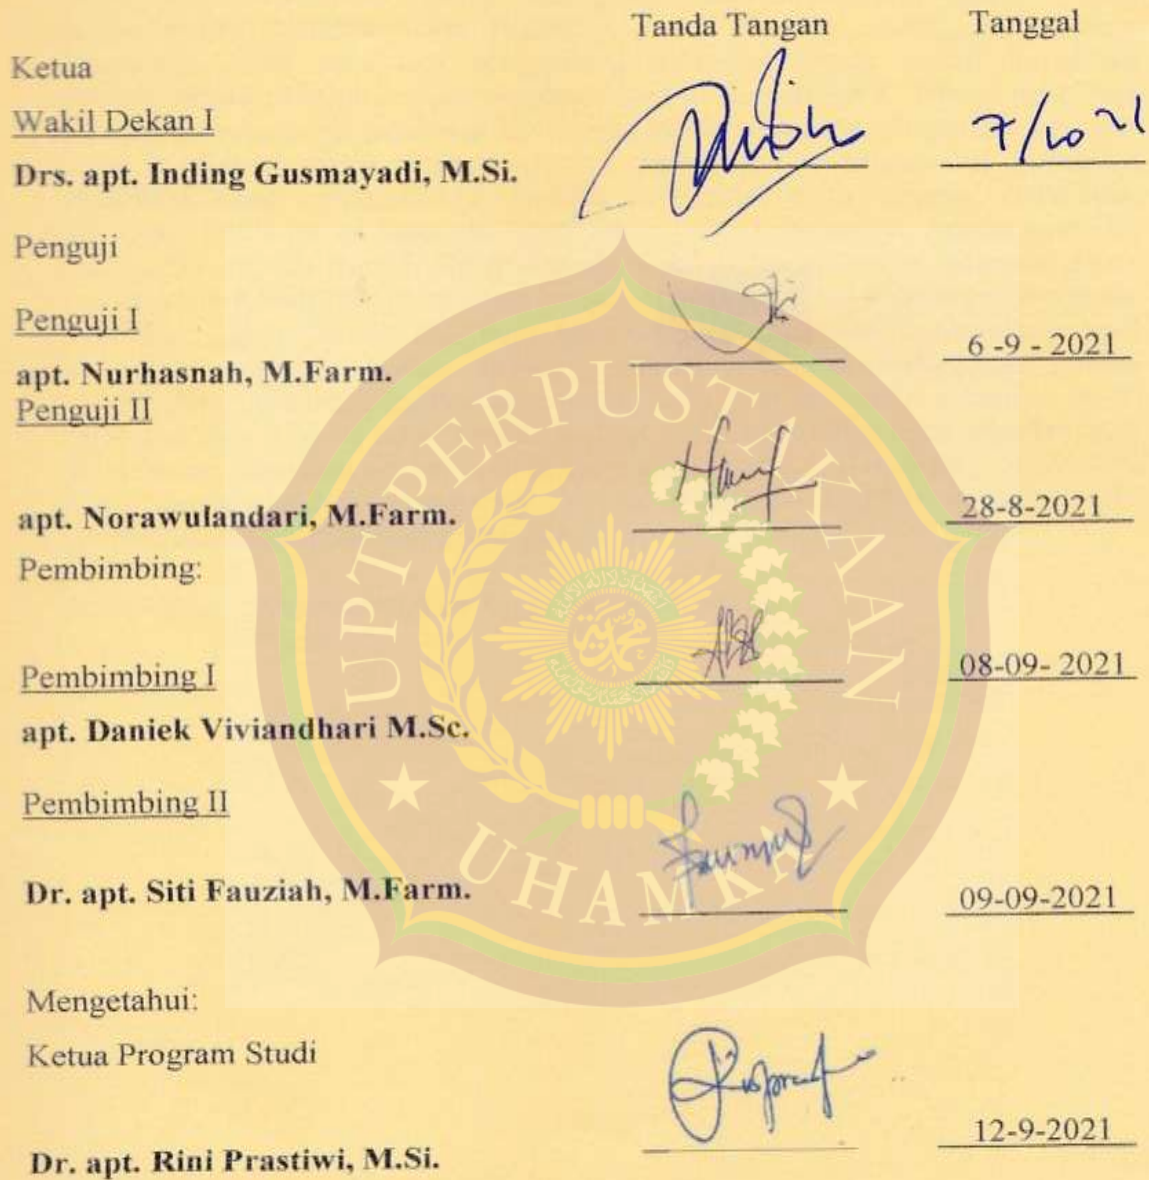 Tanda Tangan Tanggal
Ketua
Wakil Dekan I
7/10 21
Drs. apt. Inding Gusmayadi, M.Si.
Penguji
Penguji I
6 -9 - 2021
apt. Nurhasnah, M.Farm.
Penguji II
apt. Norawulandari, M.Farm.
28-8-2021
Pembimbing:
Pembimbing I
08-09- 2021
apt. Daniek Viviandhari M.Sc.
Pembimbing II
Dr. apt. Siti Fauziah, M.Farm.
09-09-2021
Mengetahui:
Ketua Program Studi
12-9-2021
Dr. apt. Rini Prastiwi, M.Si.
UPT PERPUSTAKAAN
UHAMKA